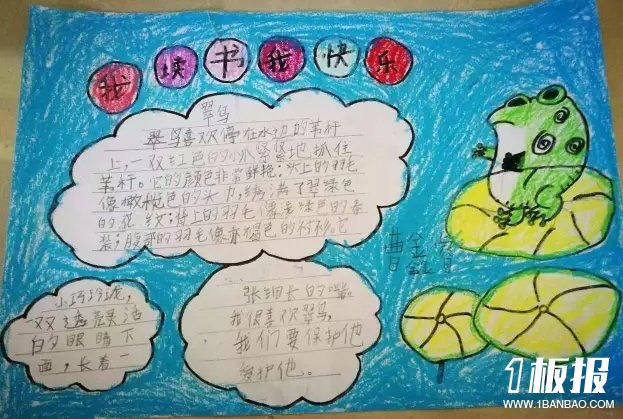 我读书我快乐
翠鸟
翠鸟喜欢停在水边的苇杆
上,一双红色的小爪紧紧地抓住
苇杆。它的颜色非常鲜艳:头上的羽毛
像橄榄色的头巾,绣满了翠绿色
的花纹;背上的羽毛像浅绿色的
装;腹部的羽毛像赤褐色的衬衫。它
小巧玲珑,
一双透亮灵活
的眼睛下
面,长着一
张细长的嘴。
我很喜欢翠鸟,
我们要保护他
爱护他。
曹鑫
1板报
WWW.1BANBAO.COM